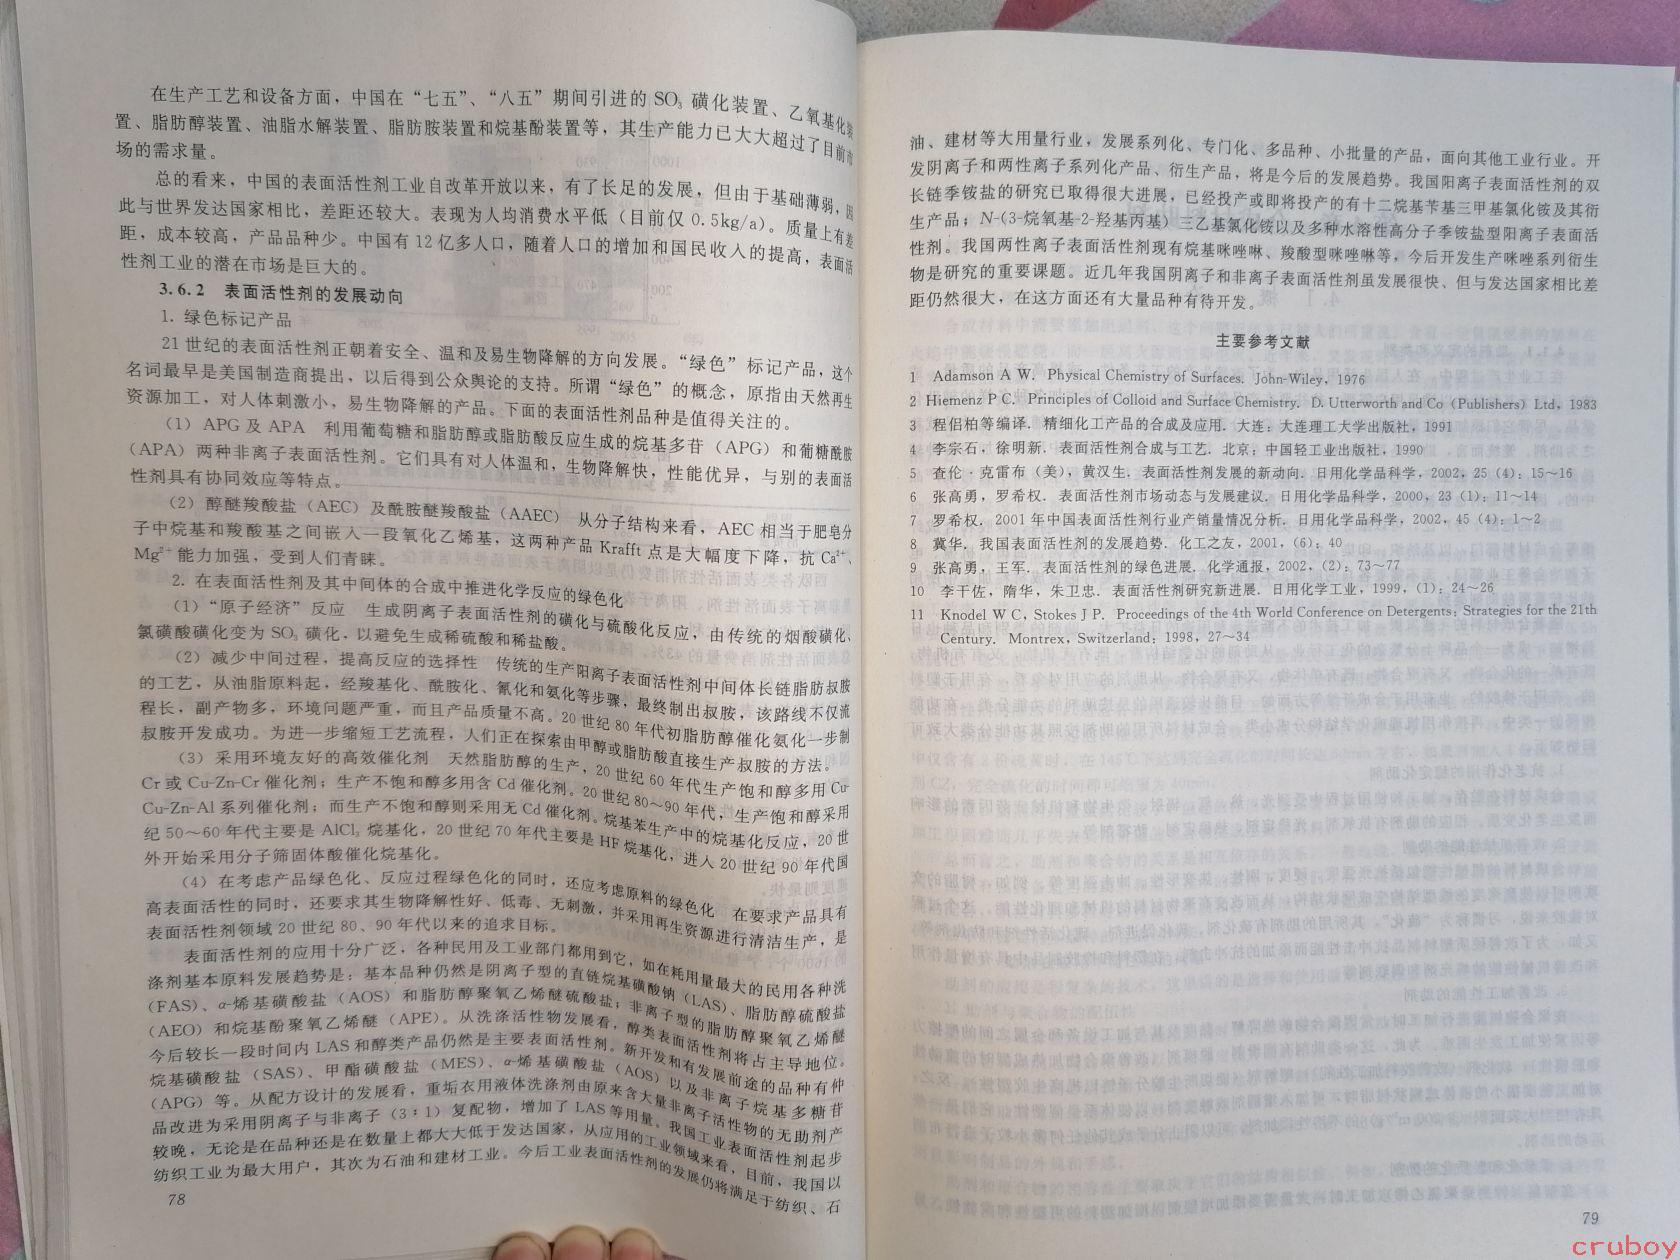 在生产工艺和设备方面，中国在“七五”、“八五”期间引进的 SO₃ 磺化装置、乙氧基化装
置、脂肪醇装置、油脂水解装置、脂肪胺装置和烷基酚装置等，其生产能力已大大超过了目前市
场的需求量。
总的看来，中国的表面活性剂工业自改革开放以来，有了长足的发展，但由于基础薄弱，因
此与世界发达国家相比，差距还较大。表现为人均消费水平低（目前仅 0.5kg/a）。质量上有差
距，成本较高，产品品种少。中国有 12 亿多人口，随着人口的增加和国民收入的提高，表面活
性剂工业的潜在市场是巨大的。
3.6.2 表面活性剂的发展动向
1. 绿色标记产品
21 世纪的表面活性剂正朝着安全、温和及易生物降解的方向发展。“绿色”标记产品，这个
名词最早是美国制造商提出，以后得到公众舆论的支持。所谓“绿色”的概念，原指由天然再生
资源加工，对人体刺激小，易生物降解的产品。下面的表面活性剂品种是值得关注的。
（1）APG 及 APA 利用葡萄糖和脂肪醇或脂肪酸反应生成的烷基多苷（APG）和葡糖酰胺
（APA）两种非离子表面活性剂。它们具有对人体温和，生物降解快，性能优异，与别的表面活
性剂具有协同效应等特点。
（2）醇醚羧酸盐（AEC）及酰胺醚羧酸盐（AAEC） 从分子结构来看，AEC 相当于肥皂分
子中烷基和羧酸基之间嵌入一段氧化乙烯基，这两种产品 Krafft 点是大幅度下降，抗 Ca²⁺、
Mg²⁺ 能力加强，受到人们青睐。
2. 在表面活性剂及其中间体的合成中推进化学反应的绿色化
（1）“原子经济”反应 生成阴离子表面活性剂的磺化与硫酸化反应，由传统的烟酸磺化、
氯磺酸磺化变为 SO₃ 磺化，以避免生成稀硫酸和稀盐酸。
（2）减少中间过程，提高反应的选择性 传统的生产阳离子表面活性剂中间体长链脂肪叔胺
的工艺，从油脂原料起，经羧基化、酰胺化、氰化和氨化等步骤，最终制出叔胺，该路线不仅流
程长，副产物多，环境问题严重，而且产品质量不高。20 世纪 80 年代初脂肪醇催化氨化一步制
叔胺开发成功。为进一步缩短工艺流程，人们正在探索由甲醇或脂肪酸直接生产叔胺的方法。
（3）采用环境友好的高效催化剂 天然脂肪醇的生产，20 世纪 60 年代生产饱和醇多用 Cu-
Cr 或 Cu-Zn-Cr 催化剂；生产不饱和醇多用含 Cd 催化剂。20 世纪 80～90 年代，生产饱和醇采用
Cu-Zn-Al 系列催化剂；而生产不饱和醇则采用无 Cd 催化剂。烷基苯生产中的烷基化反应，20 世
纪 50～60 年代主要是 AlCl₃ 烷基化，20 世纪 70 年代主要是 HF 烷基化，进入 20 世纪 90 年代国
外开始采用分子筛固体酸催化烷基化。
（4）在考虑产品绿色化、反应过程绿色化的同时，还应考虑原料的绿色化 在要求产品具有
高表面活性的同时，还要求其生物降解性好、低毒、无刺激，并采用再生资源进行清洁生产，是
表面活性剂领域 20 世纪 80、90 年代以来的追求目标。
表面活性剂的应用十分广泛，各种民用及工业部门都用到它，如在耗用量最大的民用各种洗
涤剂基本原料发展趋势是：基本品种仍然是阴离子型的直链烷基磺酸钠（LAS）、脂肪醇硫酸盐
（FAS）、α-烯基磺酸盐（AOS）和脂肪醇聚氧乙烯醚硫酸盐；非离子型的脂肪醇聚氧乙烯醚
（AEO）和烷基酚聚氧乙烯醚（APE）。从洗涤活性物发展看，醇类表面活性剂将占主导地位。
今后较长一段时间内 LAS 和醇类产品仍然是主要表面活性剂。新开发和有发展前途的品种有仲
烷基磺酸盐（SAS）、甲酯磺酸盐（MES）、α-烯基磺酸盐（AOS）以及非离子烷基多糖苷
（APG）等。从配方设计的发展看，重垢衣用液体洗涤剂由原来含大量非离子活性物的无助剂产
品改进为采用阴离子与非离子（3∶1）复配物，增加了 LAS 等用量。我国工业表面活性剂起步
较晚，无论是在品种还是在数量上都大大低于发达国家，从应用的工业领域来看，目前，我国以
纺织工业为最大用户，其次为石油和建材工业。今后工业表面活性剂的发展仍将满足于纺织、石
78
油、建材等大用量行业，发展系列化、专门化、多品种、小批量的产品，面向其他工业行业。开
发阴离子和两性离子系列化产品、衍生产品，将是今后的发展趋势。我国阳离子表面活性剂的双
长链季铵盐的研究已取得很大进展，已经投产或即将投产的有十二烷基苄基三甲基氯化铵及其衍
生产品；N-(3-烷氧基-2-羟基丙基）三乙基氯化铵以及多种水溶性高分子季铵盐型阳离子表面活
性剂。我国两性离子表面活性剂现有烷基咪唑啉、羧酸型咪唑啉等，今后开发生产咪唑系列衍生
物是研究的重要课题。近几年我国阴离子和非离子表面活性剂虽发展很快、但与发达国家相比差
距仍然很大，在这方面还有大量品种有待开发。
主要参考文献
1 Adamson A W. Physical Chemistry of Surfaces. John-Wiley, 1976
2 Hiemenz P C. Principles of Colloid and Surface Chemistry. D. Utterworth and Co (Publishers) Ltd, 1983
3 程侣柏等编译. 精细化工产品的合成及应用. 大连：大连理工大学出版社，1991
4 李宗石，徐明新. 表面活性剂合成与工艺. 北京：中国轻工业出版社，1990
5 查伦·克雷布（美），黄汉生. 表面活性剂发展的新动向. 日用化学品科学，2002，25（4）：15～16
6 张高勇，罗希权. 表面活性剂市场动态与发展建议. 日用化学品科学，2000，23（1）：11～14
7 罗希权. 2001 年中国表面活性剂行业产销量情况分析. 日用化学品科学，2002，45（4）：1～2
8 冀华. 我国表面活性剂的发展趋势. 化工之友，2001，（6）：40
9 张高勇，王军. 表面活性剂的绿色进展. 化学通报，2002，（2）：73～77
10 李干佐，隋华，朱卫忠. 表面活性剂研究新进展. 日用化学工业，1999，（1）：24～26
11 Knodel W C, Stokes J P. Proceedings of the 4th World Conference on Detergents: Strategies for the 21th
Century. Montrex, Switzerland: 1998, 27～34
79
cruboy